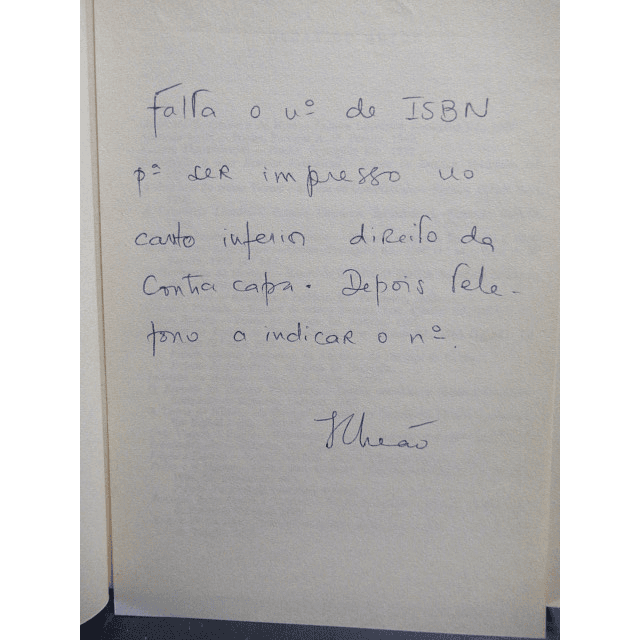 Falta o nº de ISBN
pª ser impresso no
canto inferior direito da
Contra capa. Depois tele-
fono a indicar o nº.